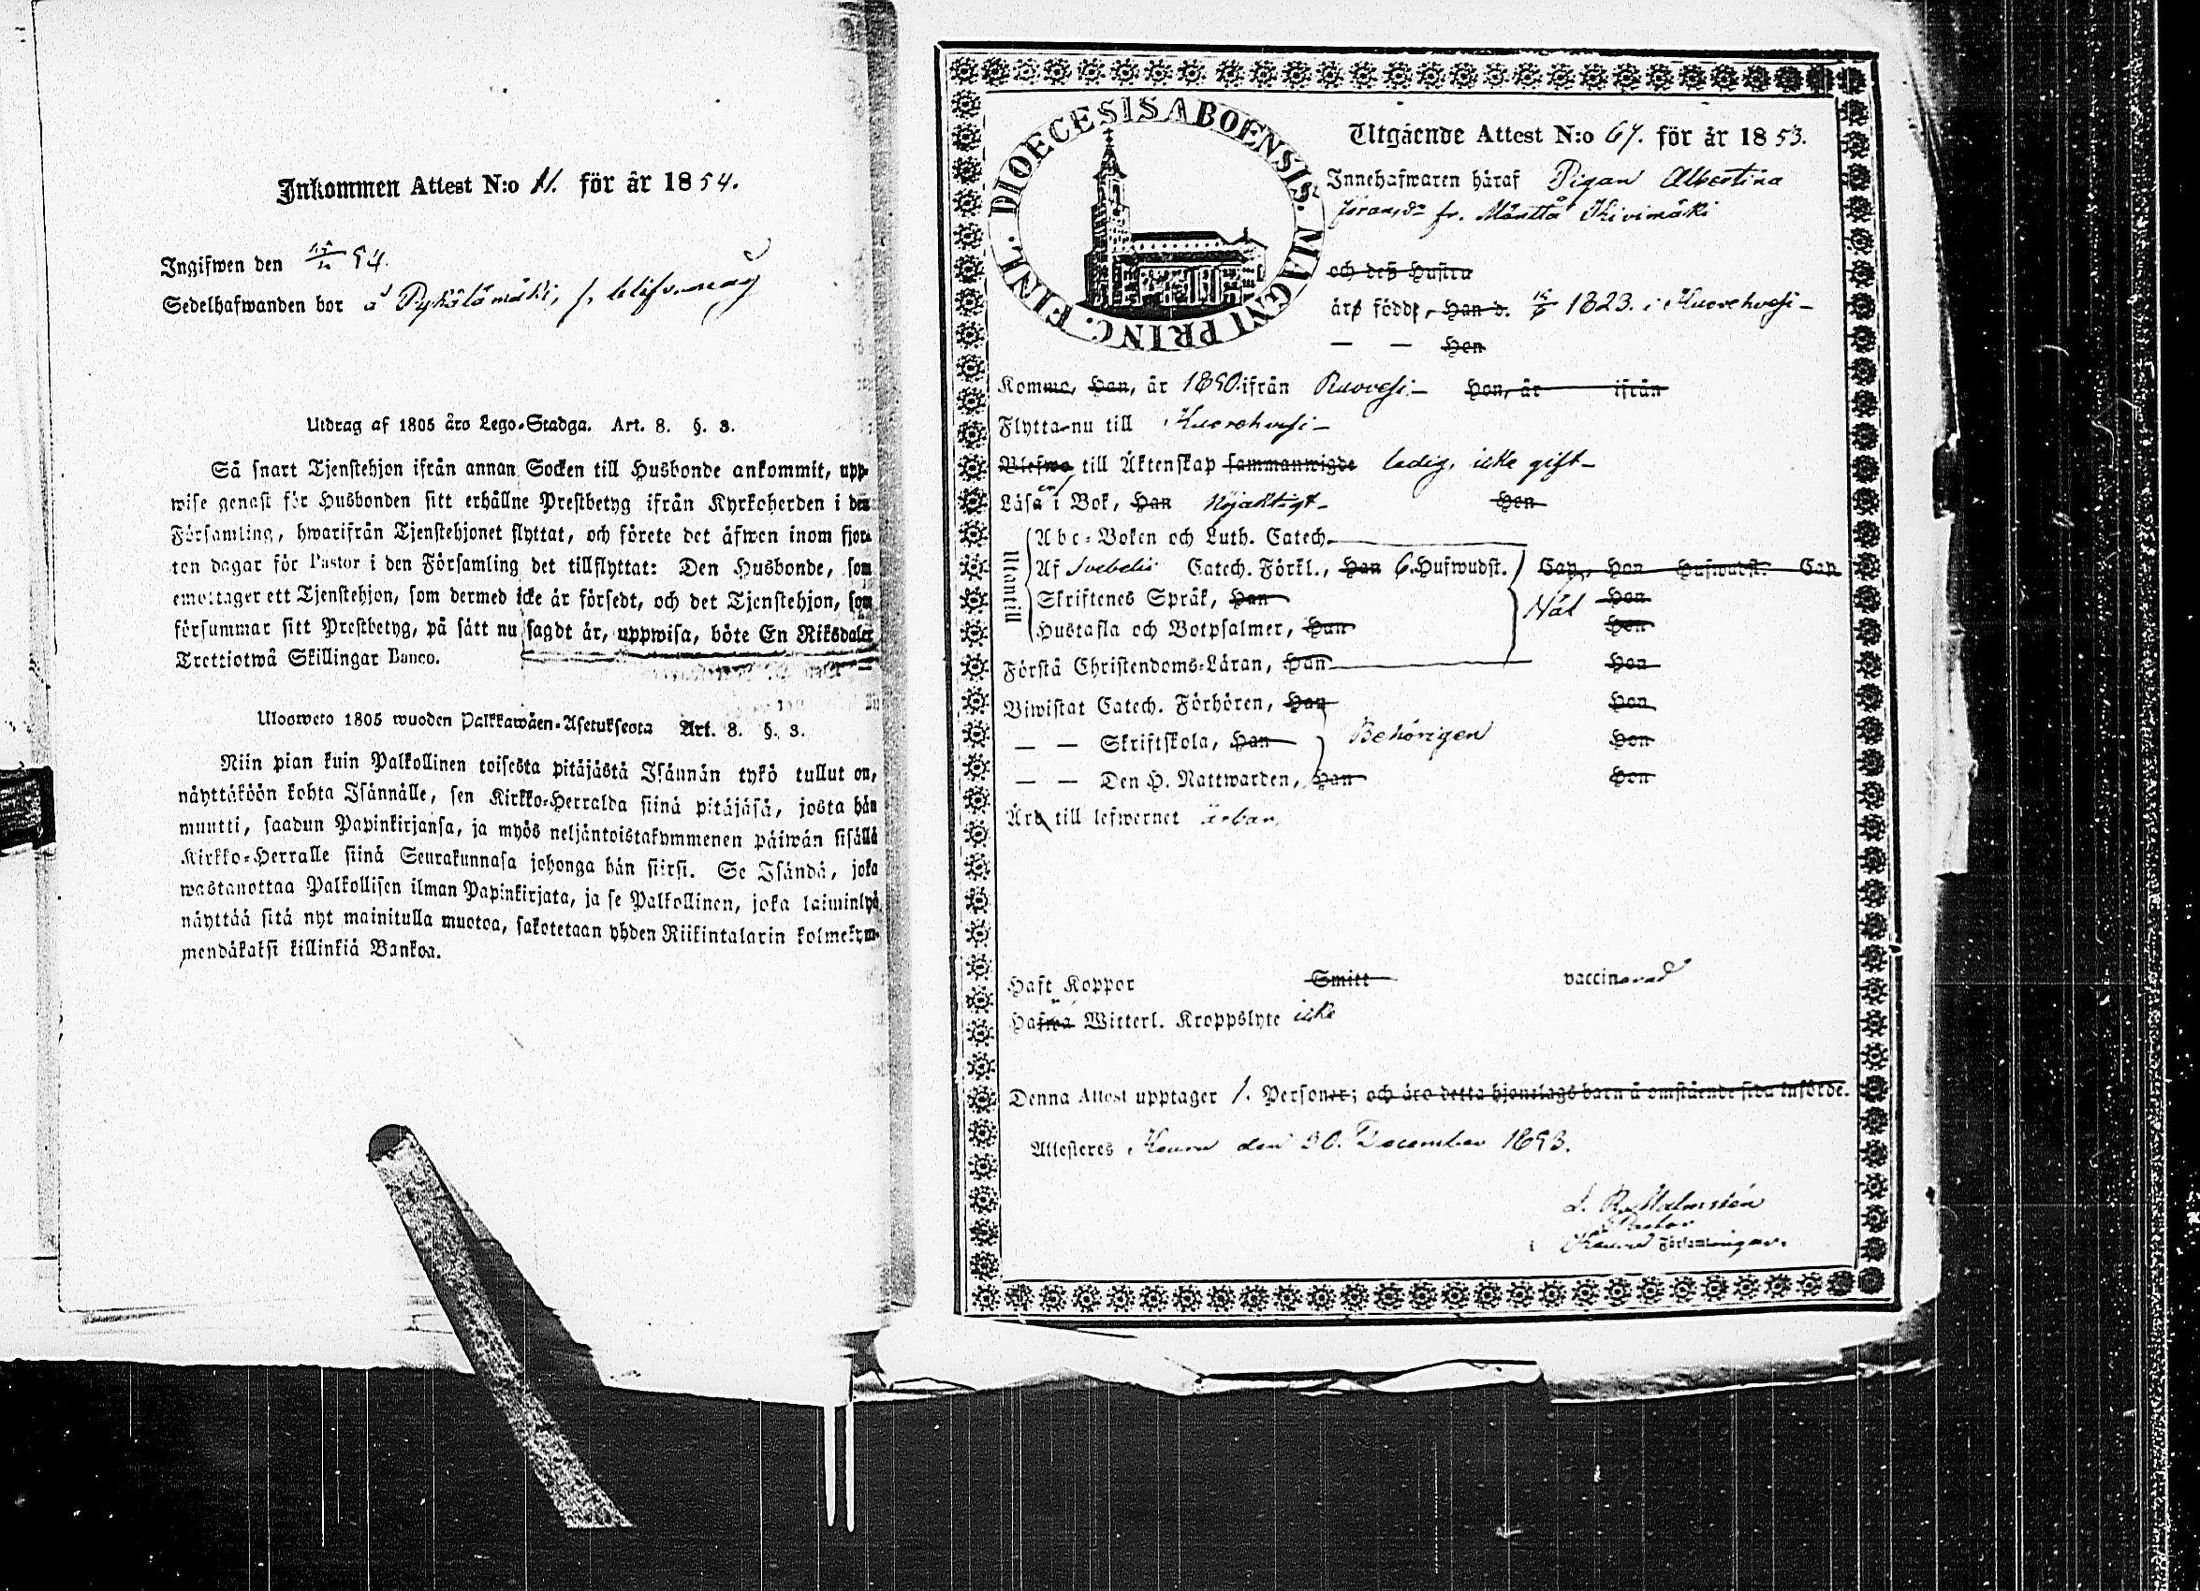 Inkommen Attest N:o 11. för år 1854.
Ingifwen den 54.
Sedelhafwanden bor å Pykälämäki,
Utdrag af 1805 års Lego-Stadga. Art. 8. §. 3.
Så snart Tjenstehjon ifrån annan Socken till Husbonde ankommit, upp-
wise genast för Husbonden sitt erhållne Prestbetyg ifrån Kyrkoherden i den
Församling, hwarifrån Tjenstehjonet flyttat, och förete det äfwen inom fjor-
ton dagar för Pastor i den Församling det tillflyttat: Den Husbonde, som
emottager ett Tjenstehjon, som dermed icke är försedt, och det Tjenstehjon, som
försummar sitt Prestbetyg, på sätt nu sagdt är, uppwisa, böte En Riksdaler
Trettiotwå Skillingar Banco.
Ulosweto 1805 wuoden Palkkawäen-Asetuksesta Art. 8. §. 3.
Niin pian kuin Palkollinen toisesta pitäjästä Isännän tykö tullut on,
näyttäköön kohta Isännälle, sen Kirkko-Herralda siinä pitäjäsä, josta hän
muutti, saadun Papinkirjansa, ja myös neljäntoistakymmenen päiwän sisällä
Kirkko-Herralle siinä Seurakunnasa johonga hän siirsi. Se Isändä, joka
wastanottaa Palkollisen ilman Papinkirjata, ja se Palkollinen, joka laiminlyö
näyttää sitä nyt mainitulla muotoa, sakotetaan yhden Riikintalarin kolmekym-
mendäkaksi killinkiä Bankoa.
DIOECESIS ABOENSIS. MAGNI PRINC. FINL.
Utgående Attest N:o 67. för år 1853.
Innehafwaren häraf Pigan Albertina
fr. Mänttä Kivimäki
och deß Hustru
äro född, Han d. 1823. i Kuorehvesi
— — Hon
Komma, Han, år 1850 ifrån Ruovesi Hon, år ifrån
Flytta nu till Kuorehvesi
Blefwo till Äktenskap sammanwigde ledig, icke gift
Läsa i Bok, Han Nöjaktigt Hon
Utantill
Abc-Boken och Luth. Catech.
Af Svebelii Catech. Förkl., Han 6. Hufwudst. Cap., Hon Hufwudst. Cap.
Skriftenes Språk, Han Hon
Hustafla och Botpsalmer, Han Hon
Förstå Christendoms-Läran, Han Hon
Biwistat Catech. Förhören, Han Hon
— — Skriftskola, Han Behörigen Hon
— — Den H. Nattwarden, Han Hon
Äro till lefwernet ärbar
Haft Koppor Smitt vaccinerad
Hafwa Witterl. Kroppslyte icke
Denna Attest upptager 1. Personer; och äro detta hjonelags barn å omstående sida införde.
Attesteras Keuru den 30. December 1853.
Malmstén
Pastor
Keuru Församlingar.